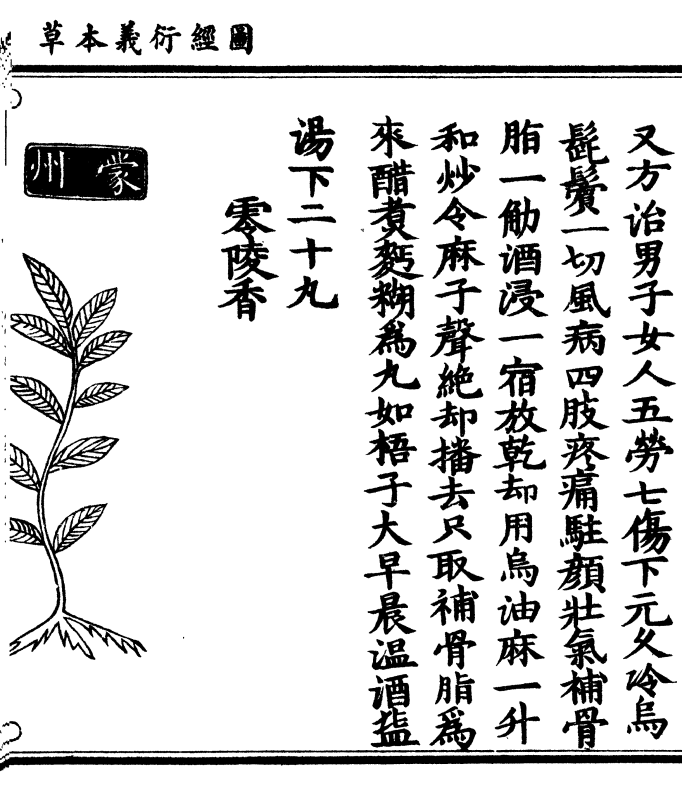 圖經衍義本草
又方治男子女人五勞七傷下元久冷烏
髭鬢一切風病四肢疼痛駐顏壯氣補骨
脂一觔酒浸一宿放乾却用烏油麻一升
和炒令麻子聲絶却播去只取補骨脂爲
末醋煮麪糊爲丸如梧子大早晨温酒鹽
湯下二十丸
零陵香
蒙州